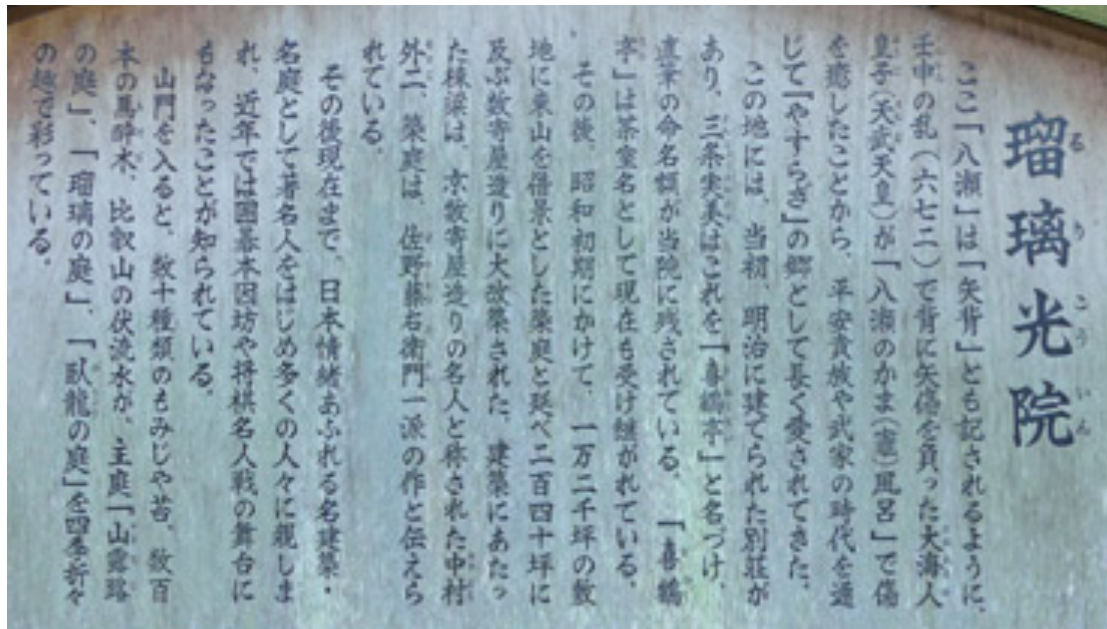 瑠璃光院
るりこういん
ここ「八瀬」は「矢背」とも記されるように、
壬申の乱(六七二)で背に矢傷を負った大海人
皇子(天武天皇)が「八瀬のかま(竈)風呂」で傷
を癒したことから、平安貴族や武家の時代を通
じて「やすらぎ」の郷として長く愛されてきた。
この地には、当初、明治に建てられた別荘が
あり、三条実美はこれを「喜鶴亭」と名づけ、
直筆の命名額が当院に残されている。「喜鶴
亭」は茶室名として現在も受け継がれている。
その後、昭和初期にかけて、一万二千坪の敷
地に東山を借景とした築庭と延べ二百四十坪に
及ぶ数寄屋造りに大改築された。建築にあたっ
た棟梁は、京数寄屋造りの名人と称された中村
外二、築庭は、佐野藤右衛門一源の作と伝えら
れている。
その後現在まで、日本情緒あふれる名建築・
名庭として著名人をはじめ多くの人々に親しま
れ、近年では囲碁本因坊や将棋名人戦の舞台に
もなったことが知られている。
山門を入ると、数十種類のもみじや苔、数百
本の馬酔木、比叡山の伏流水が、主庭「山露路
の庭」、「瑠璃の庭」、「臥龍の庭」を四季折々
の趣で彩っている。